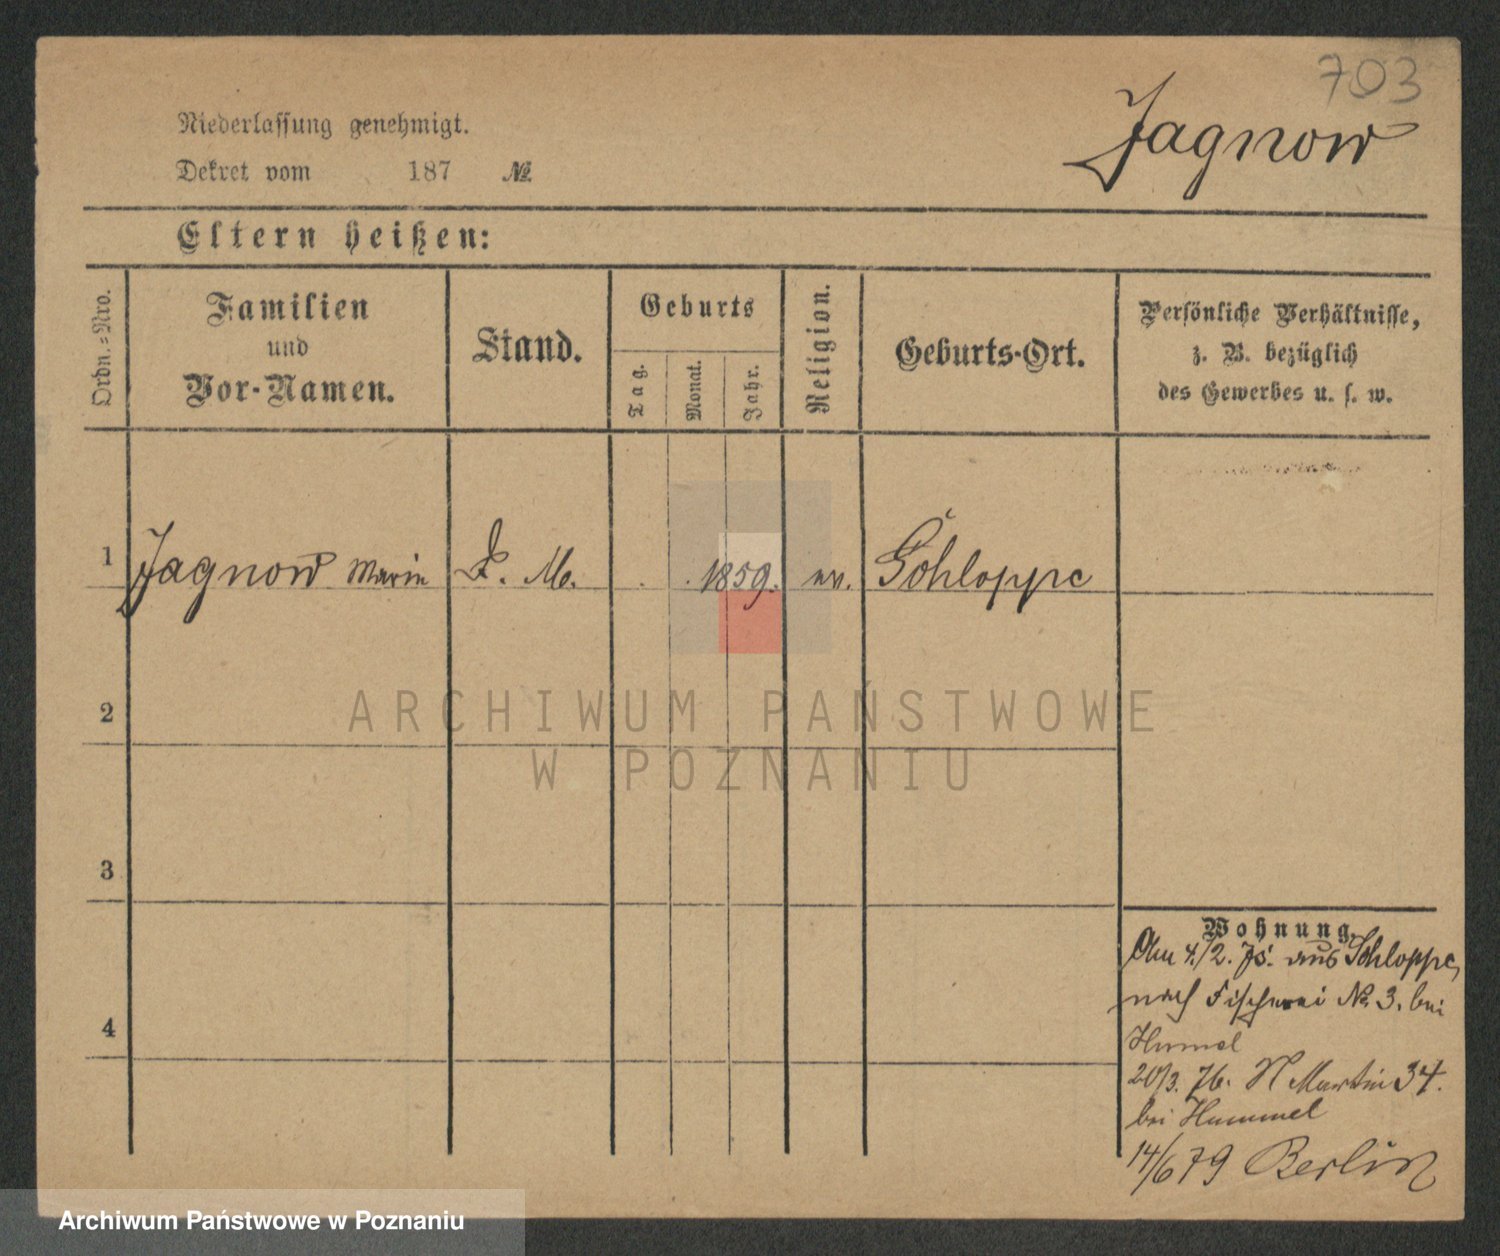 703
Jagnow
Niederlassung genehmigt.
Dekret vom 187 №
Eltern heißen:
Ordn.=Nro.
Familien
und
Vor-Namen.
Stand.
Geburts
Tag.
Monat.
Jahr.
Religion.
Geburts-Ort.
Persönliche Verhältnisse,
z. B. bezüglich
des Gewerbes u. s. w.
1 Jagnow Marie D. M. 1859. ev. Schloppe
2
3
4
Wohnung.
4./2. 75. aus Schloppe,
nach Fischerei № 3. bei
Hummel
20/3. 76. St Martin 34.
bei Hummel
14/6 79 Berlin
ARCHIWUM PAŃSTWOWE
W POZNANIU
Archiwum Państwowe w Poznaniu